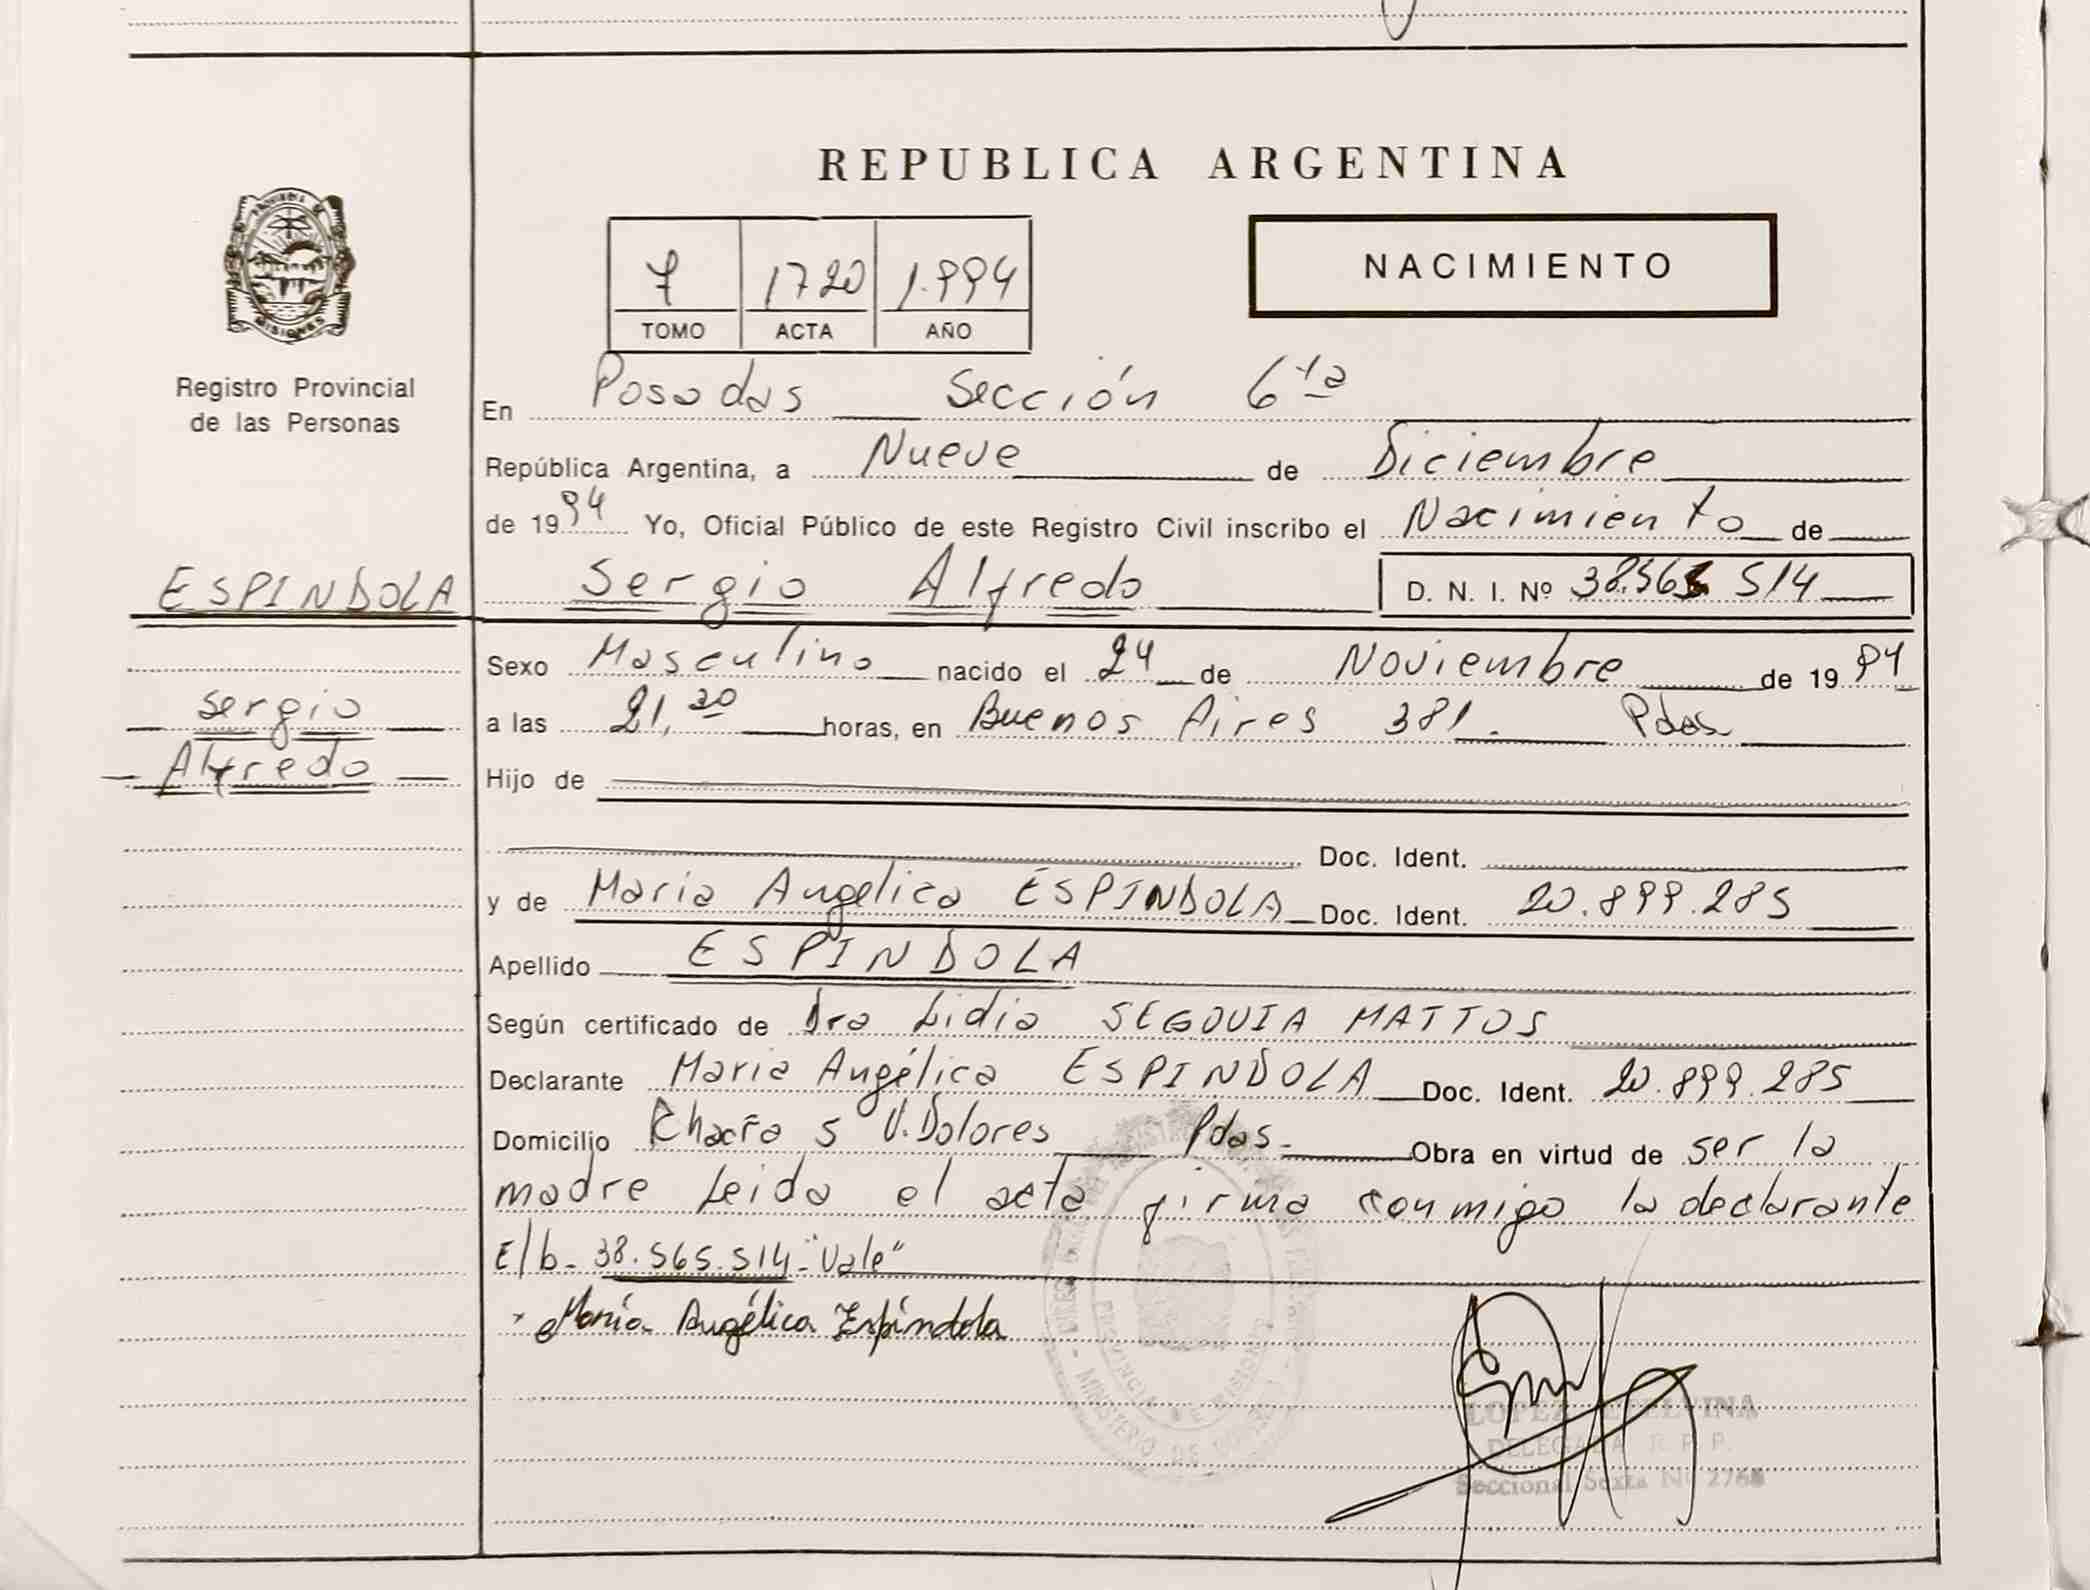 REPUBLICA ARGENTINA
7 1720 1.994
TOMO ACTA AÑO
NACIMIENTO
MISIONES
Registro Provincial
de las Personas
En Posadas Sección 6ta
República Argentina, a Nueve de Diciembre
de 1994 Yo, Oficial Público de este Registro Civil inscribo el Nacimiento de
ESPINDOLA Sergio Alfredo D. N. I. Nº 38.565 514
Sexo Masculino nacido el 24 de Noviembre de 1994
Sergio
a las 21,20 horas, en Buenos Aires 381. Pdas
Alfredo
Hijo de
Doc. Ident.
y de Maria Angelica ESPINDOLA Doc. Ident. 20.899.285
Apellido ESPINDOLA
Según certificado de Dra Lidia SEGOVIA MATTOS
Declarante Maria Angélica ESPINDOLA Doc. Ident. 20.899.285
Domicilio Chacra 5 V. Dolores Pdas. Obra en virtud de ser la
madre Leida el acta firma conmigo la declarante
E/b- 38.565.514-"Vale"
María Angélica Espíndola
LOPEZ ETELVINA
DELEGADA R. P. P.
Seccional Sexta Nº 2768